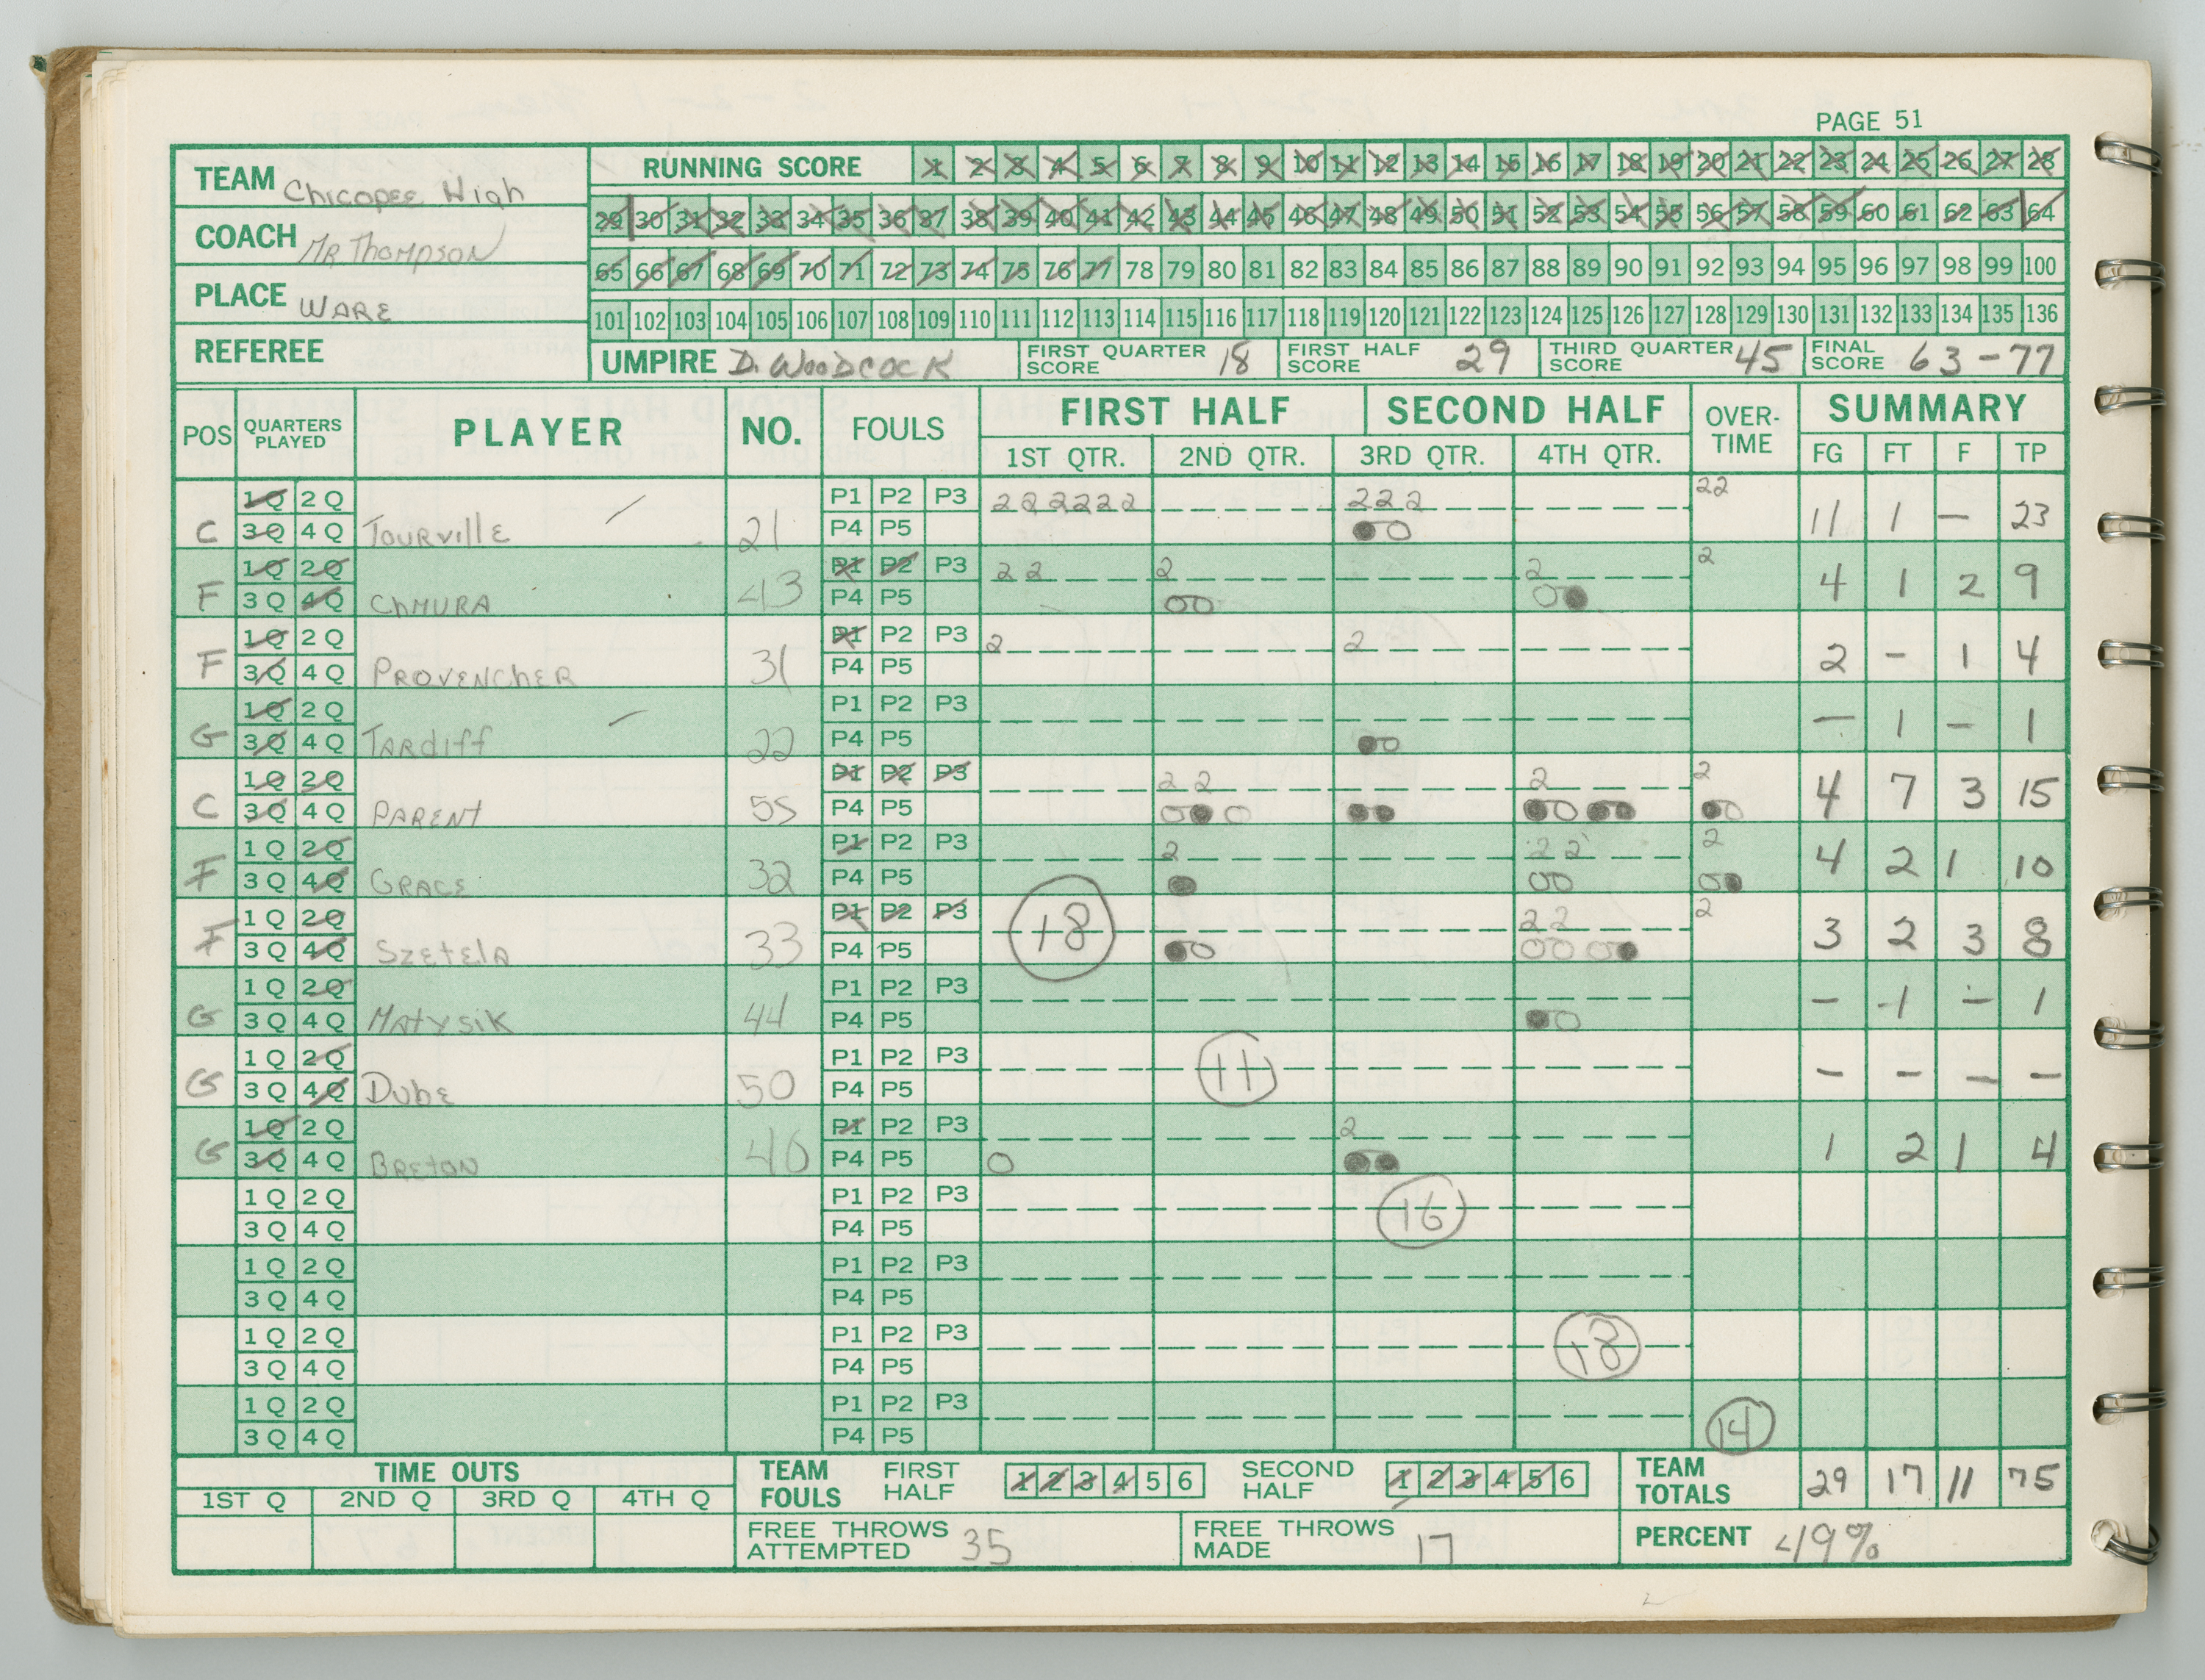 PAGE 51
TEAM Chicopee High
COACH Mr Thompson
PLACE WARE
REFEREE
RUNNING SCORE 1 2 3 4 5 6 7 8 9 10 11 12 13 14 15 16 17 18 19 20 21 22 23 24 25 26 27 28
29 30 31 32 33 34 35 36 37 38 39 40 41 42 43 44 45 46 47 48 49 50 51 52 53 54 55 56 57 58 59 60 61 62 63 64
65 66 67 68 69 70 71 72 73 74 75 76 77 78 79 80 81 82 83 84 85 86 87 88 89 90 91 92 93 94 95 96 97 98 99 100
101 102 103 104 105 106 107 108 109 110 111 112 113 114 115 116 117 118 119 120 121 122 123 124 125 126 127 128 129 130 131 132 133 134 135 136
UMPIRE D. WOODCOCK FIRST QUARTER SCORE 18 FIRST HALF SCORE 29 THIRD QUARTER SCORE 45 FINAL SCORE 63-77
POS QUARTERS PLAYED PLAYER NO. FOULS FIRST HALF SECOND HALF OVER-TIME SUMMARY
1ST QTR. 2ND QTR. 3RD QTR. 4TH QTR. FG FT F TP
1Q 2Q P1 P2 P3 222222 222 22
C 3Q 4Q TOURVILLE 21 P4 P5 11 1 — 23
1Q 2Q P1 P2 P3 22 2 2 2
F 3Q 4Q CHMURA 43 P4 P5 4 1 2 9
1Q 2Q P1 P2 P3 2 2
F 3Q 4Q PROVENCHER 31 P4 P5 2 - 1 4
1Q 2Q P1 P2 P3
G 3Q 4Q TARDIFF 22 P4 P5 — 1 — 1
1Q 2Q P1 P2 P3 22 2 2
C 3Q 4Q PARENT 55 P4 P5 4 7 3 15
1Q 2Q P1 P2 P3 2 22 2
F 3Q 4Q GRACE 32 P4 P5 4 2 1 10
1Q 2Q P1 P2 P3 22 2
F 3Q 4Q SZETELA 33 P4 P5 18 3 2 3 8
1Q 2Q P1 P2 P3
G 3Q 4Q MATYSIK 44 P4 P5 - 1 - 1
1Q 2Q P1 P2 P3
G 3Q 4Q DUBE 50 P4 P5 11 - - - -
1Q 2Q P1 P2 P3 2
G 3Q 4Q BRETON 40 P4 P5 1 2 1 4
1Q 2Q P1 P2 P3
3Q 4Q P4 P5 16
1Q 2Q P1 P2 P3
3Q 4Q P4 P5
1Q 2Q P1 P2 P3
3Q 4Q P4 P5 18
1Q 2Q P1 P2 P3
3Q 4Q P4 P5 14
TIME OUTS TEAM FOULS FIRST HALF 1 2 3 4 5 6 SECOND HALF 1 2 3 4 5 6 TEAM TOTALS 29 17 11 75
1ST Q 2ND Q 3RD Q 4TH Q
FREE THROWS ATTEMPTED 35 FREE THROWS MADE 17 PERCENT 49%